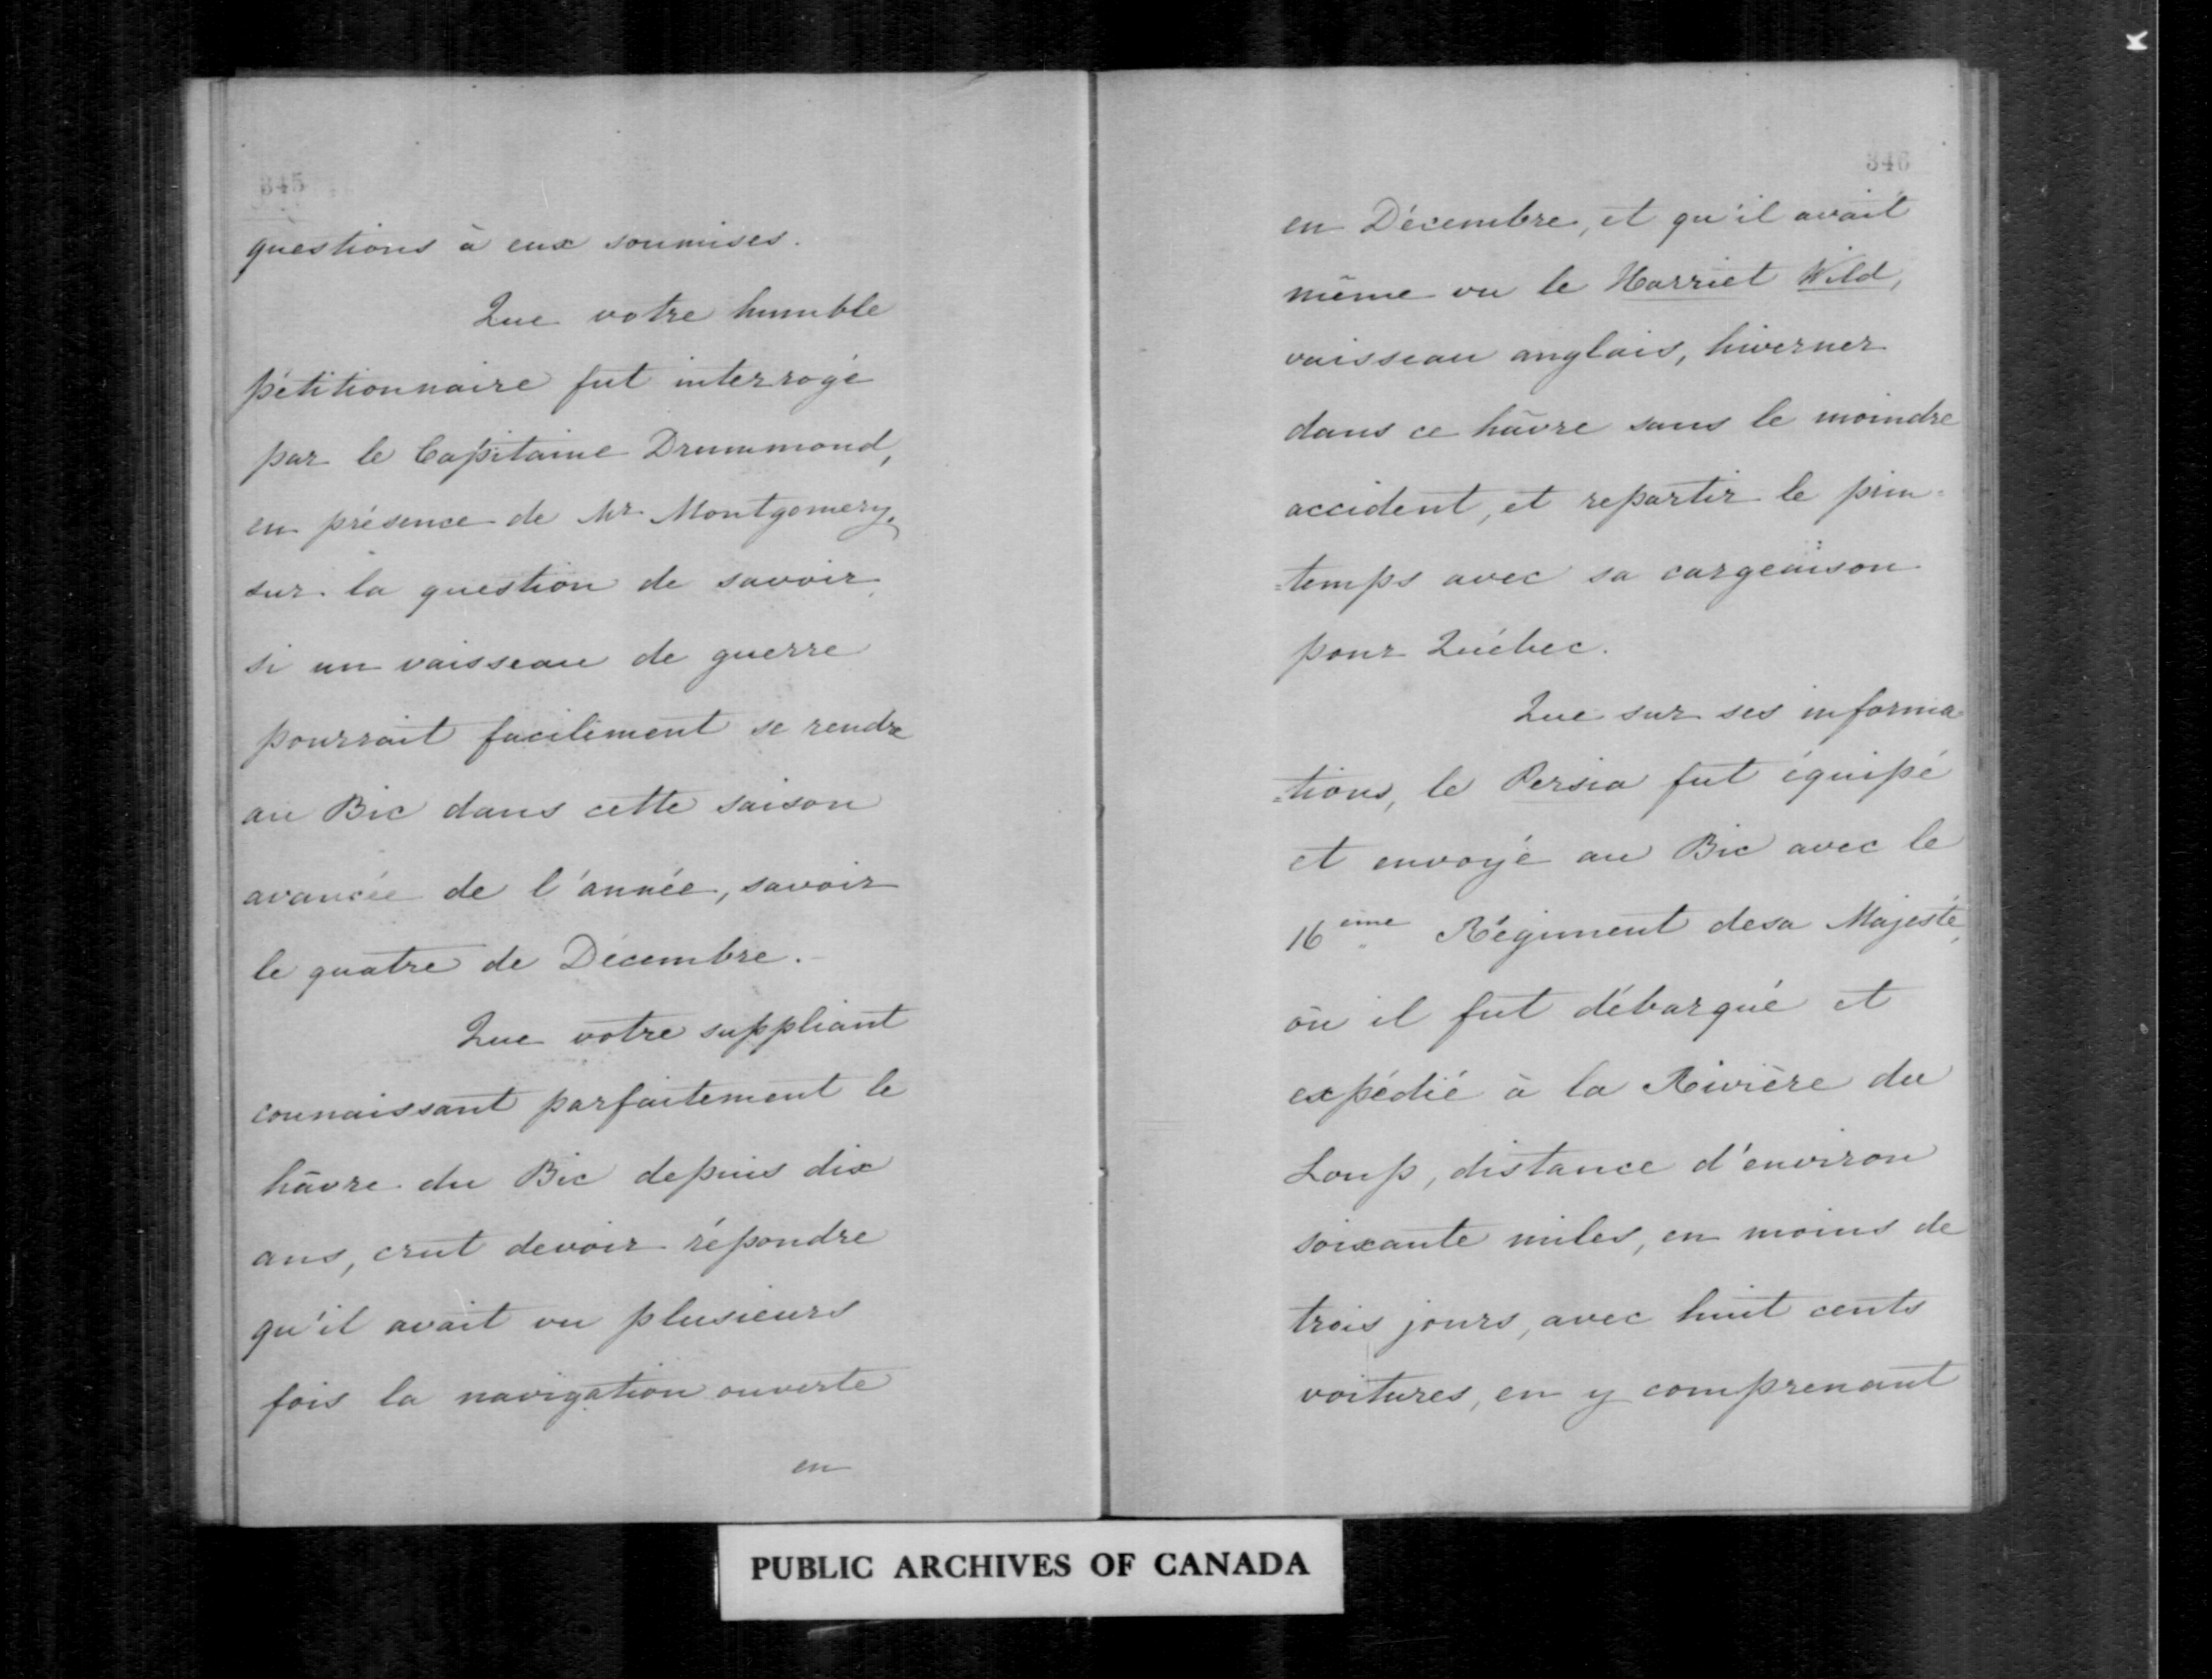 345
questions à eux soumises.
Que votre humble
pétitionnaire fut interrogé
par le Capitaine Drummond,
en présence de Mr. Montgomery,
sur la question de savoir
si un vaisseau de guerre
pourrait facilement se rendre
au Bic dans cette saison
avancée de l'année, savoir
le quatre de Décembre.
Que votre suppliant
connaissant parfaitement le
hâvre du Bic depuis dix
ans, crut devoir répondre
qu'il avait vu plusieurs
fois la navigation ouverte
en
346
en Décembre, et qu'il avait
même vu le Harriet Wild,
vaisseau anglais, hiverner
dans ce hâvre sans le moindre
accident, et repartir le prin=
=temps avec sa cargeaison
pour Québec.
Que sur ses informa
=tions, le Persia fut équipé
et envoyé au Bic avec le
16ème Régiment de sa Majesté,
où il fut débarqué et
expédié à la Rivière du
Loup, distance d'environ
soixante miles, en moins de
trois jours, avec huit cents
voitures, en y comprenant
PUBLIC ARCHIVES OF CANADA